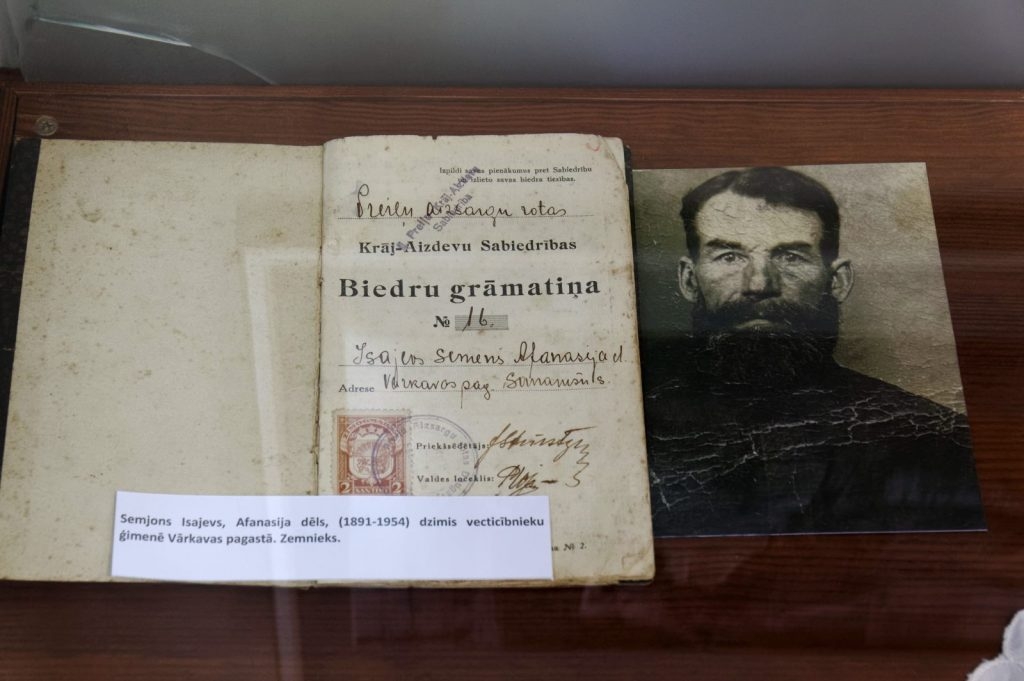 Izpildi savas pienākumus pret Sabiedrību
izlieto savas biedra tiesības.
Preiļu aizsargu rotas
Krāj-Aizdevu Sabiedrības
Biedru grāmatiņa
№ 16.
Isajevs Semens Afanasija d.
Adrese Vārkavos pag.
Priekšsēdētājs:
Valdes loceklis:
2
№ 2.
Semjons Isajevs, Afanasija dēls, (1891-1954) dzimis vecticībnieku
ģimenē Vārkavas pagastā. Zemnieks.